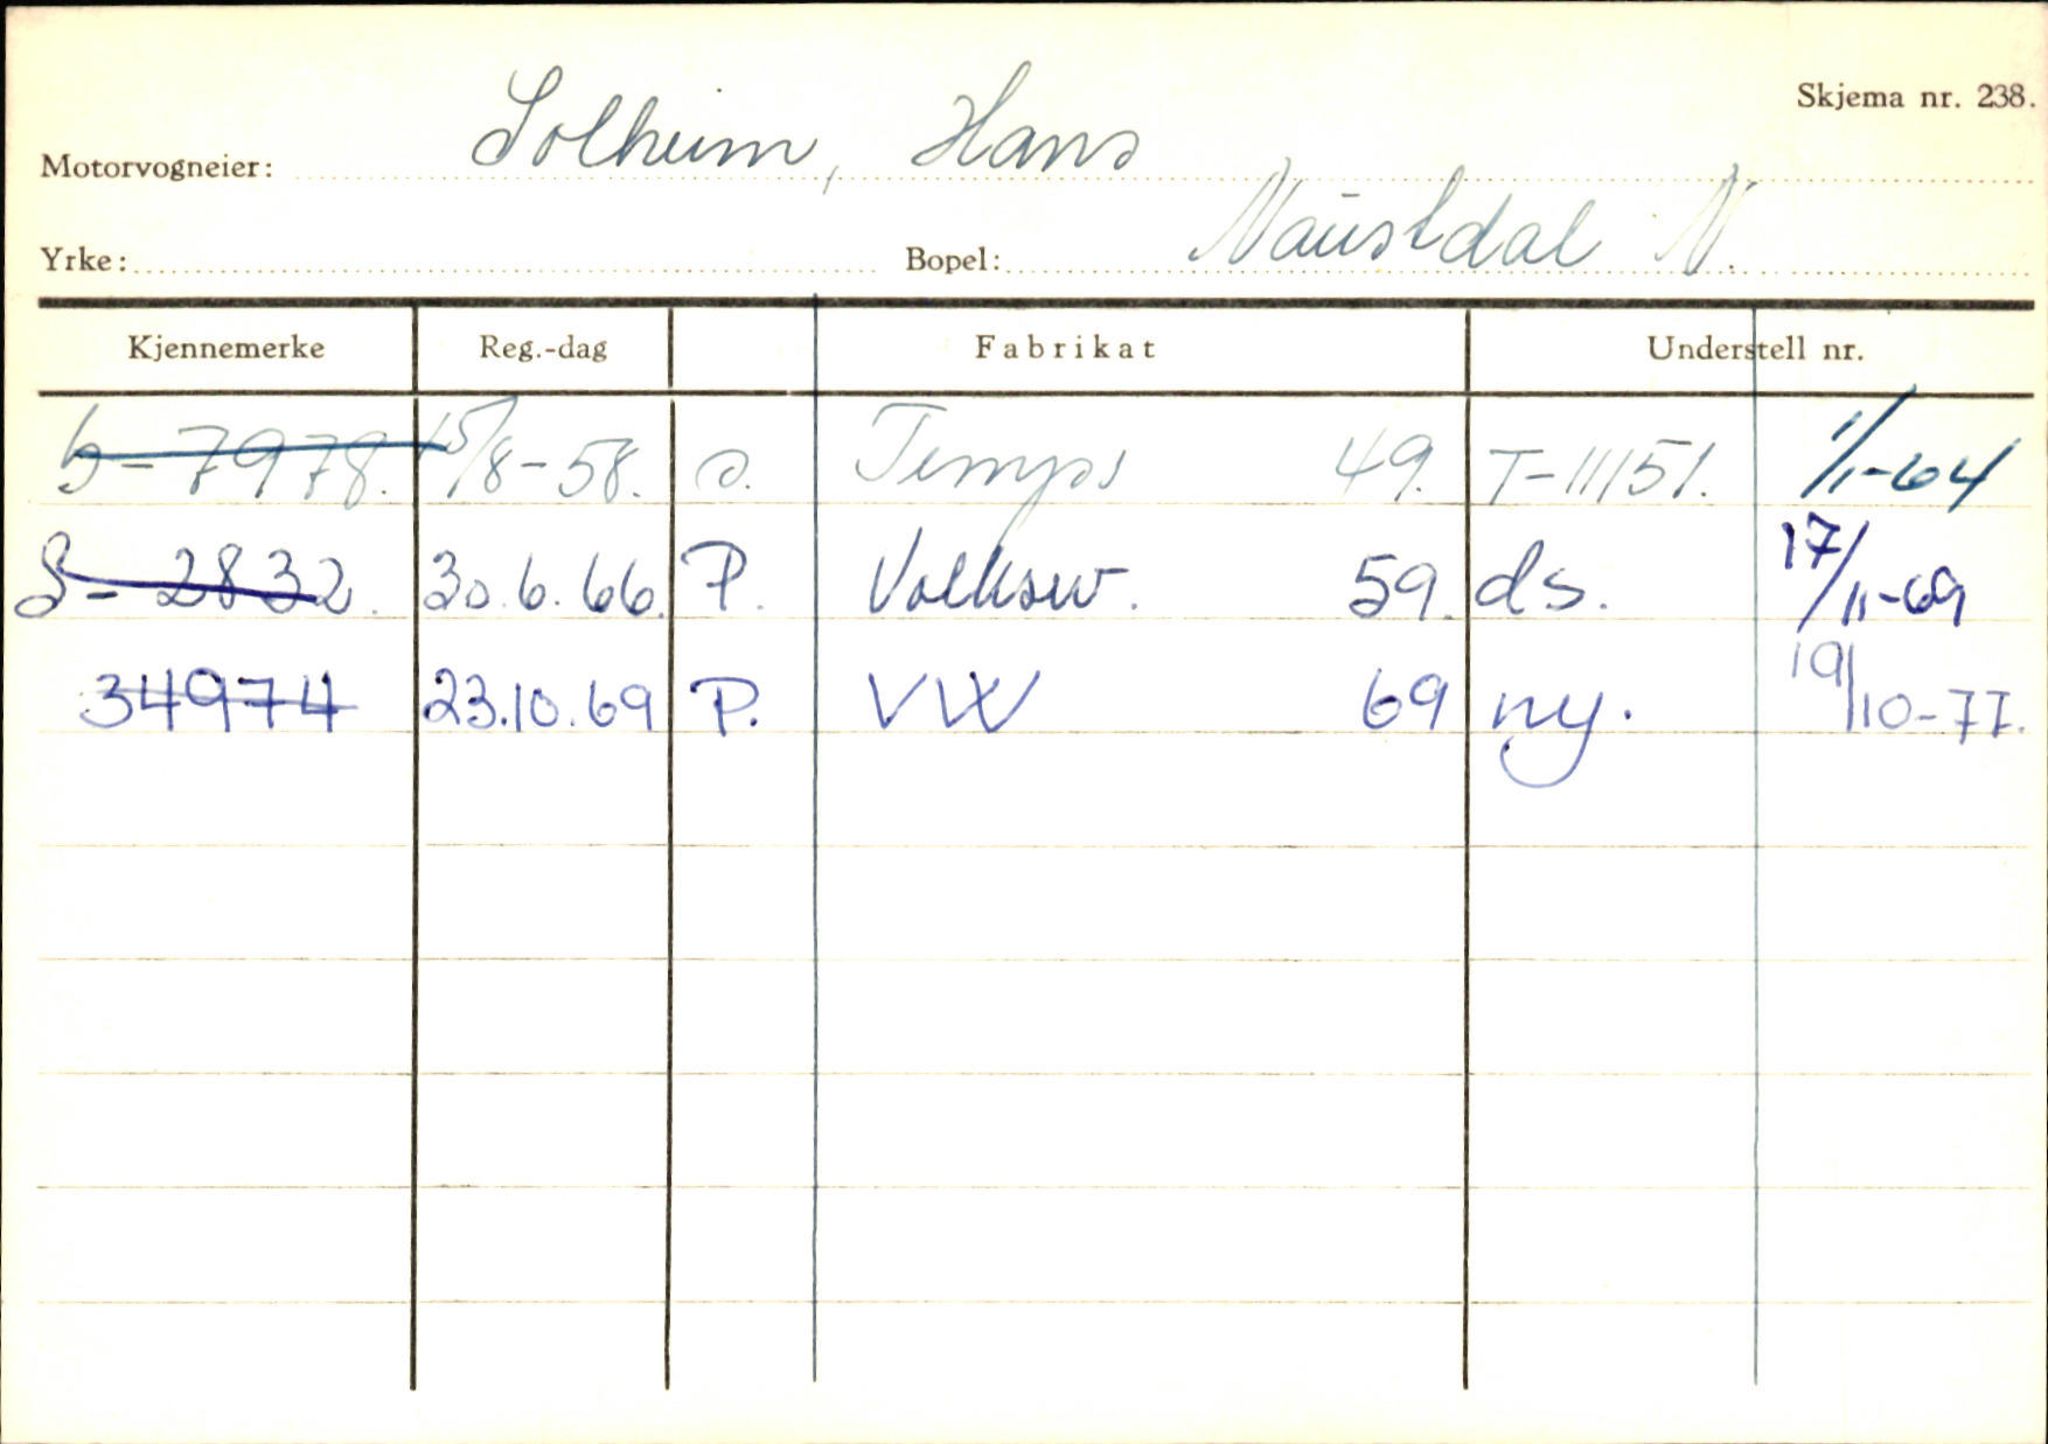 Skjema nr. 238.
Motorvogneier: Solheim, Hans
Yrke: Bopel: Naustdal N.
Kjennemerke Reg.-dag Fabrikat Understell nr.
S-7978. 15/8-58. s. Tempo 49. T-11151. 1/1-64
S-2832. 30.6.66. P. Volksw. 59. ds. 17/11-69
34974 23.10.69 P. VW 69 ny. 19/10-77.